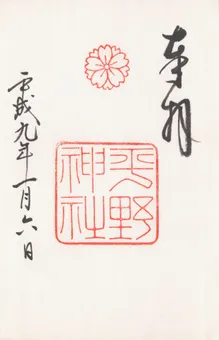 奉拝
平野
神社
平成九年一月六日